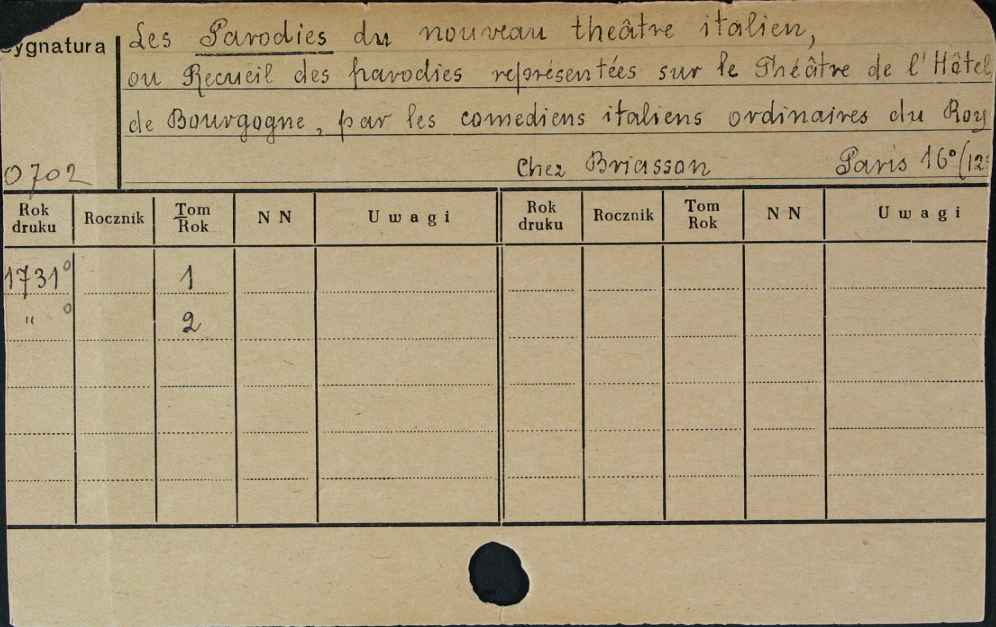 Sygnatura
Les Parodies du nouveau theâtre italien,
ou Recueil des parodies représentées sur le Théâtre de l'Hôtel
de Bourgogne, par les comediens italiens ordinaires du Roy
0702 Chez Briasson Paris 16° (12°
Rok druku Rocznik Tom Rok NN Uwagi Rok druku Rocznik Tom Rok NN Uwagi
1731° 1
" ° 2